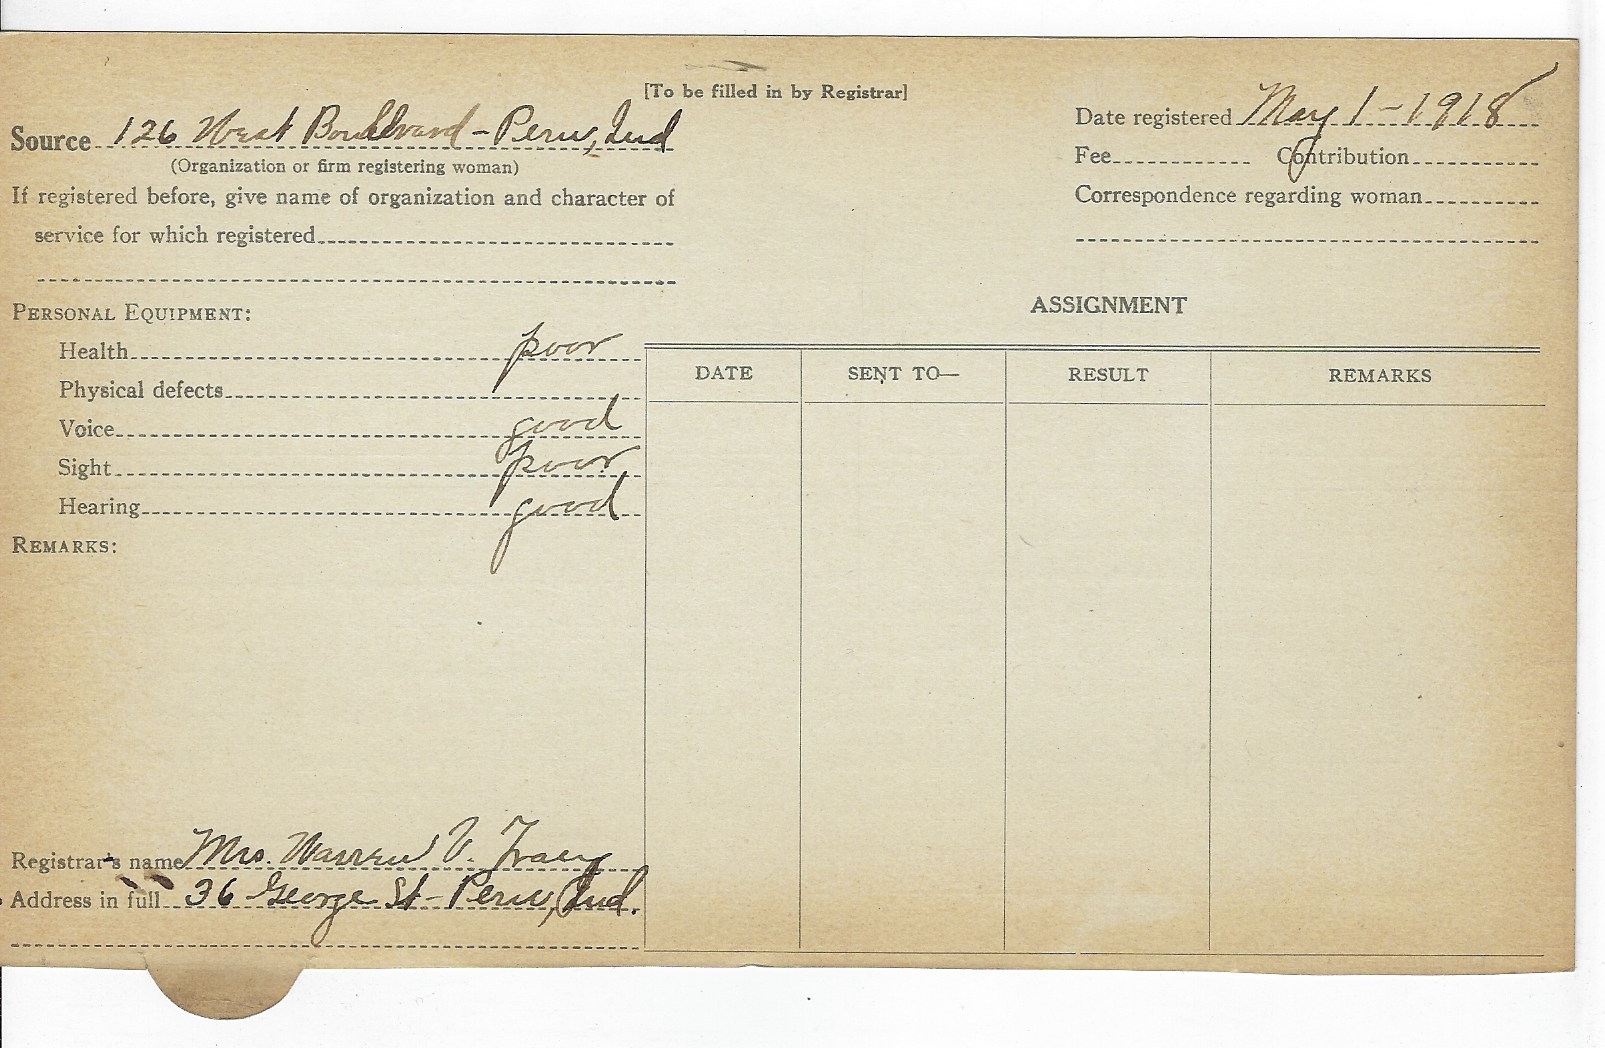 [To be filled in by Registrar]
Source 126 West Boulevard - Peru, Ind
(Organization or firm registering woman)
If registered before, give name of organization and character of
service for which registered
Date registered May 1 - 1918
Fee Contribution
Correspondence regarding woman
PERSONAL EQUIPMENT:
Health poor
Physical defects
Voice good
Sight poor
Hearing good
REMARKS:
Registrar's name Mrs. Warren V. Tracy
Address in full 36 George St - Peru, Ind.
ASSIGNMENT
DATE SENT TO— RESULT REMARKS